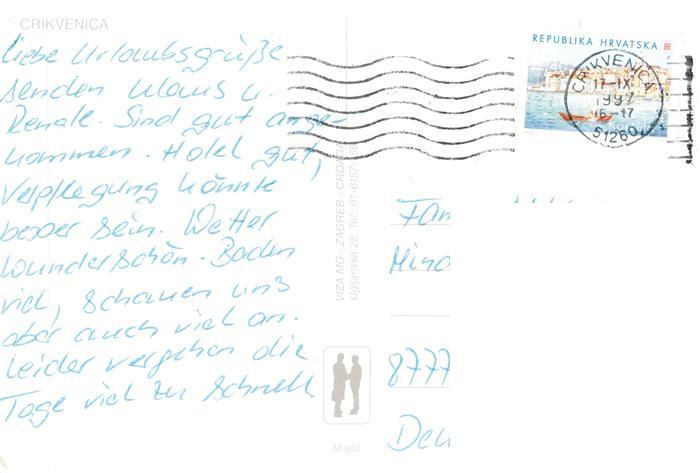 CRIKVENICA
Liebe Urlaubsgrüße
senden Klaus u.
Renate. Sind gut ange-
kommen. Hotel gut,
Verpflegung könnte
besser sein. Wetter
wunderschön. Baden
viel, schauen uns
aber auch viel an.
Leider vergehen die
Tage viel zu schnell
REPUBLIKA HRVATSKA
CRIKVENICA
17-IX
1997
16-17
51260
VIZA MG · ZAGREB · CRO
Ugljanska 28, Tel.: 01-6157
Fam
8777
M-880